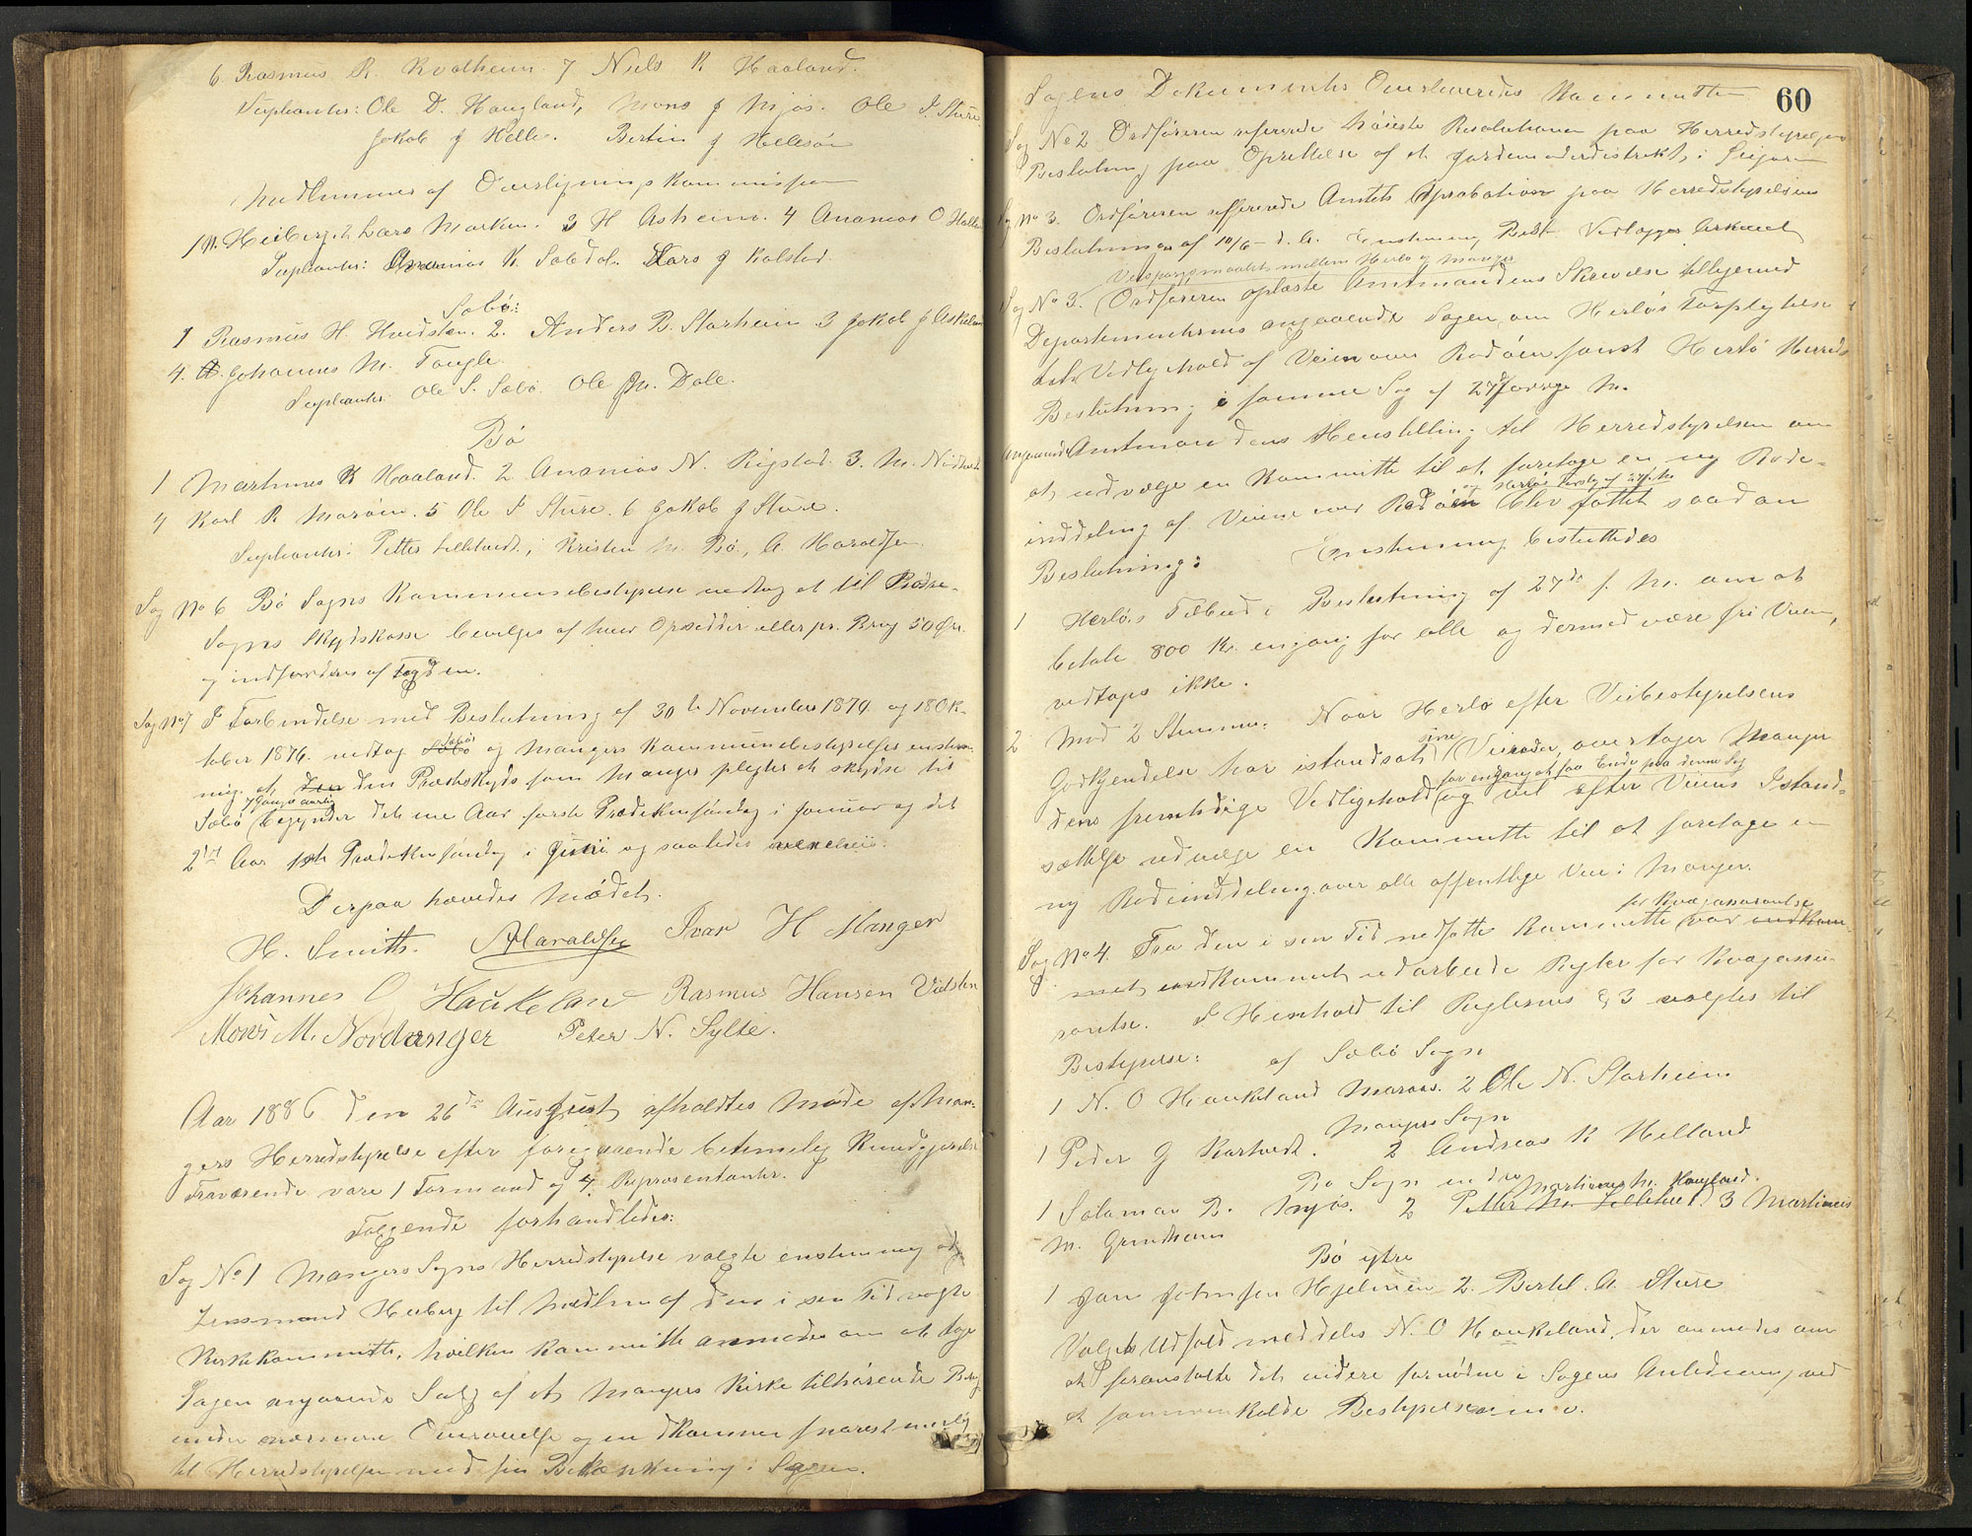 6. Rasmus R. Kvalheim. 7 Niels K Haaland.
Supleanter: Ole D. Haugland, Mons J Mjøs. Ole I. Sture.
Jakob J Helle. Bertin J Hellesøe
Medlemmer af Overligningskommissionen
1 N. Heiberg. 2 Lars Marken. 3 H Askeim. 4 Ananias O Halland
Supleanter: Ananias K. Sæbdal. Lars J Kolstad.
Sæbø:
1 Rasmus H. Hvidsten. 2. Anders R. Starheim 3 Jakob J Askeland
4. Johannes M. Fougle
Supleanter Ole S. Sæbø. Ole M. Dale.
Bø
1 Martinus K Haaland. 2 Ananias N. Rigstad. 3. M. Nidtveit
4 Karl R Marøen. 5 Ole I Sture. 6 Jakob J Sture.
Supleanter: Petter Lilletvedt, Kristen M. Bø, A. Haraldsen.
Sag No 6 Bø Sogns Kommunebestyrelse vedtog at til Bø
Sogns Skydskasse bevilges af hver Opsidder eller pr. Brug 50 Øre
og indfordres af Fogden.
Sag No 7 I Forbindelse med Beslutning af 30te November 1874 og 18 Ok-
tober 1876. vedtog Sæbø og Mangers Kommunebestyrelse enstem-
mig. at den Præsteskyds som Manger pleier at skydse til
7 Gange aarlig
Sæbø begynder det ene Aar første Prædikensøndag i Januar og det
2det Aar 1ste Prædikensøndag i Juni og saaledes vexelvis.
Derpaa hævedes Mødet.
H. Smith. A Haraldsen Ivar H Manger
Johannes O Haukeland Rasmus Hansen Vidsten
Mons M. Nordanger Peter N. Sylte.
Aar 1886 den 26de August afholdtes Møde af Man-
gers Herredstyrelse efter foregaaende betimelig Kundgjørelse
Fraværende vare 1 Formand og 4 Repræsentanter.
Følgende forhandledes:
Sag No 1 Mangers Sogns Herredstyrelse valgte enstemmig
Lensmand Heiberg til Medlem af den i sin Tid valgte
Kirkekommitte, hvilken Kommitte anmodes om at tage
Sagen angaaende Salg af et Mangers Kirke tilhørende
under nærmere Overveielse og indkommer snarest mulig
til Herredstyrelsen med sin Betænkning i Sagen.
60
Sagens Dokumenter Overleveredes Kommitten
Sag No 2 Ordføreren refererede høieste Resolution paa Herredstyrelsens
Beslutning paa Oprettelse af et Jordemoderdistrikt i
Sag No 3. Ordføreren refererede Amtets Aprobation paa Herredstyrelsens
Beslutninger af 10/6 d. A. Enstemmig Besl. Vedlægges Arkivet
Veispørgsmaalet mellem Herlø og Manger
Sag No 3. Ordføreren oplæste Amtmandens Skrivelse tilligemed
Departementernes angaaende Sagen om Herløs Forpligtelse
Vedligehold af Veien over Radøen samt Herlø Herreds
Beslutning i samme Sag af 27de forrige M.
Angaaende Amtmandens Henstilling til Herredstyrelsen om
at udvælge en Kommitte til at foretage en ny Rode-
inddeling af Veiene over Radøen blev fattet saadan
Beslutning: Enstemmig besluttedes
1 Herløs Tilbud i Beslutning af 27de f. M. om at
betale 800 Kr. engang for alle og dermed være fri Veien,
vedtages ikke.
2 Mod 2 Stemmer. Naar Herlø efter Veibestyrelsens
sine
Godkjendelse har istandsat Veiroder, overtager Manger
for engang at faa Ende paa denne Sag
den fremtidige Vedligehold og vil efter Veiens Istand-
sættelse udvælge en Kommitte til at foretage en
ny Rodeinddeling over alle offentlige Veie i Manger.
for Kvægassurantse
Sag No 4. Fra den i sin Tid nedsatte Kommitte var indkom-
met indkommet udarbeide Regler for Kvægassu-
rantse. I Henhold til Reglernes § 3 valgtes til
Bestyrelse: af Sæbø Sogn
1 N. O Haukeland Marøes. 2 Ole N. Starheim
Mangers Sogn
1 Peder G Kartveit. 2 Andreas K Helland
Bø Sogn indre Martinus M. Haugland.
1 Salamon B. Mjøs. 2 Petter M. Lilletvedt. 3 Martinus
M. Grindheim
Bø ytre
1 Jan Johnsen Hjelmen 2. Bertel A. Sture
Valgets Udfald meddeles N. O Haukeland, der anmodes om
at foranstalte det videre fornødne i Sagens Anledning, ved
at sammenkalde Bestyrelsen m. v.